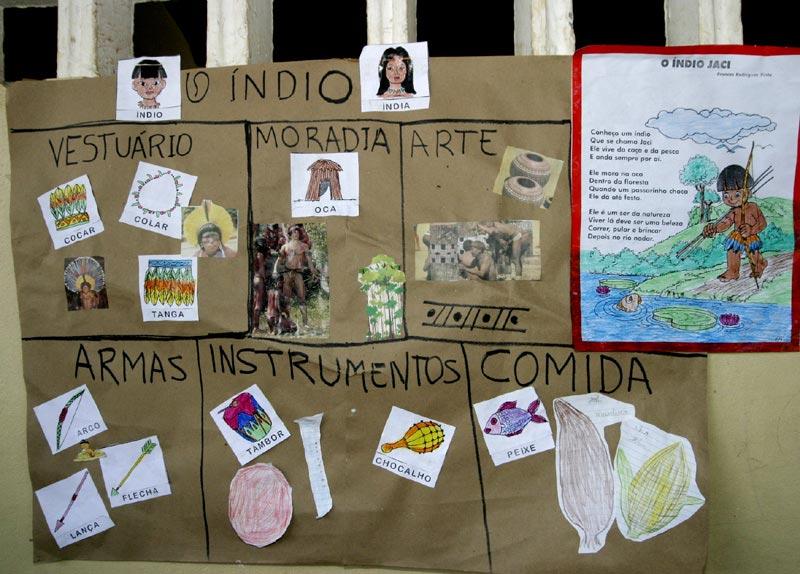 O ÍNDIO
ÍNDIO
ÍNDIA
VESTUÁRIO
COCAR
COLAR
TANGA
MORADIA
OCA
ARTE
ARMAS
ARCO
FLECHA
LANÇA
INSTRUMENTOS
TAMBOR
CHOCALHO
COMIDA
PEIXE
O ÍNDIO JACI
Conheço um índio
Que se chama Jaci
Ele vive da caça e da pesca
E anda sempre por aí.
Ele mora na oca
Dentro da floresta
Quando um passarinho choca
Ele dá até festa.
Ele é um ser da natureza
Viver lá deve ser uma beleza
Correr, pular e brincar
Depois no rio nadar.